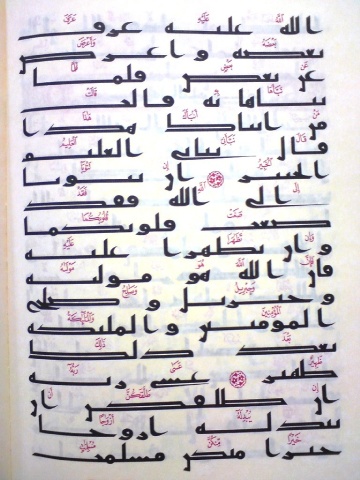 الله عليه عرف
بعضه واعرض
عن بعض فلما
نباها به قالت
من انباك هذا
قال نبانى العليم
الخبير ان تتوبا
الى الله فقد
صغت قلوبكما
وان تظهرا عليه
فان الله هو موليه
وجبريل وصلح
المومنين والمليكة
بعد ذلك
ظهير عسى ربه
ان طلقكن ان
يبدله ازوجا
خيرا منكن مسلمت